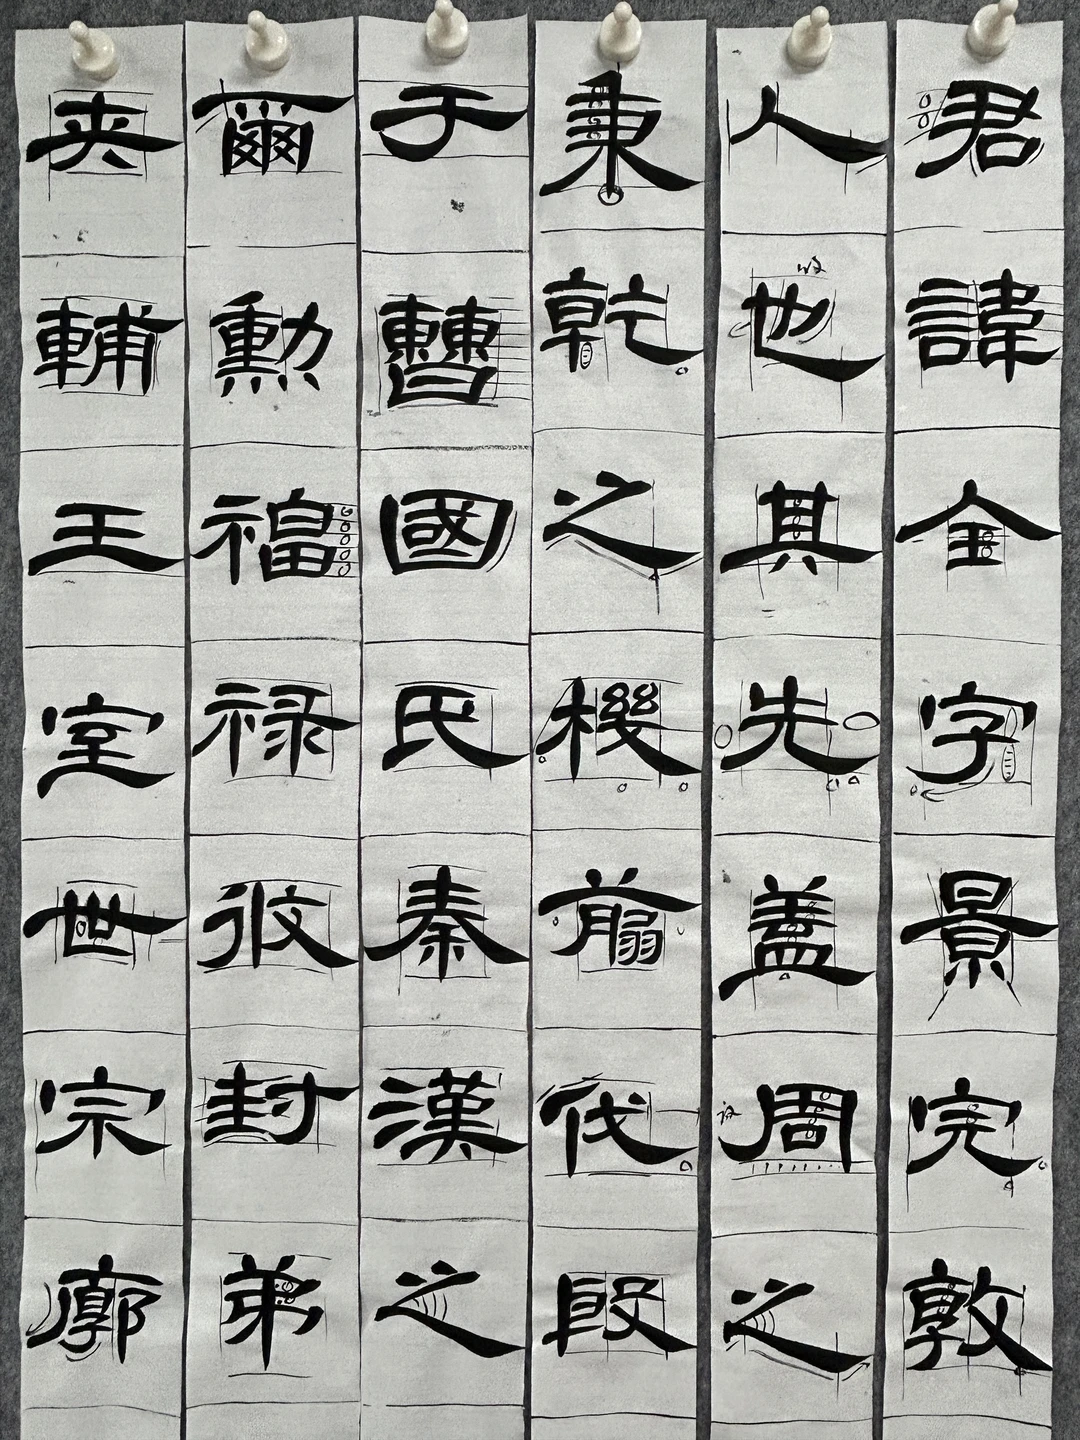 君諱全字景完敦
人也其先蓋周之
秉乾之機翦伐殷
于㬝國氏秦漢之
爾勳福祿攸封弟
夾輔王室世宗廓